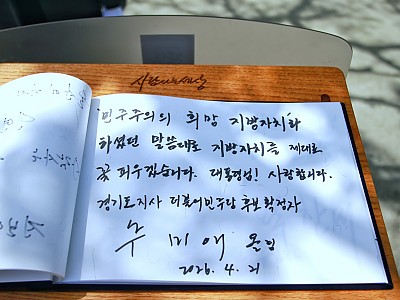 사람사는세상
민주주의의 희망 지방자치라
하셨던 말씀대로 지방자치를 제대로
꽃 피우겠습니다. 대통령님! 사랑합니다.
경기도지사 더불어민주당 후보확정자
추 미 애 올림
2026. 4. 21